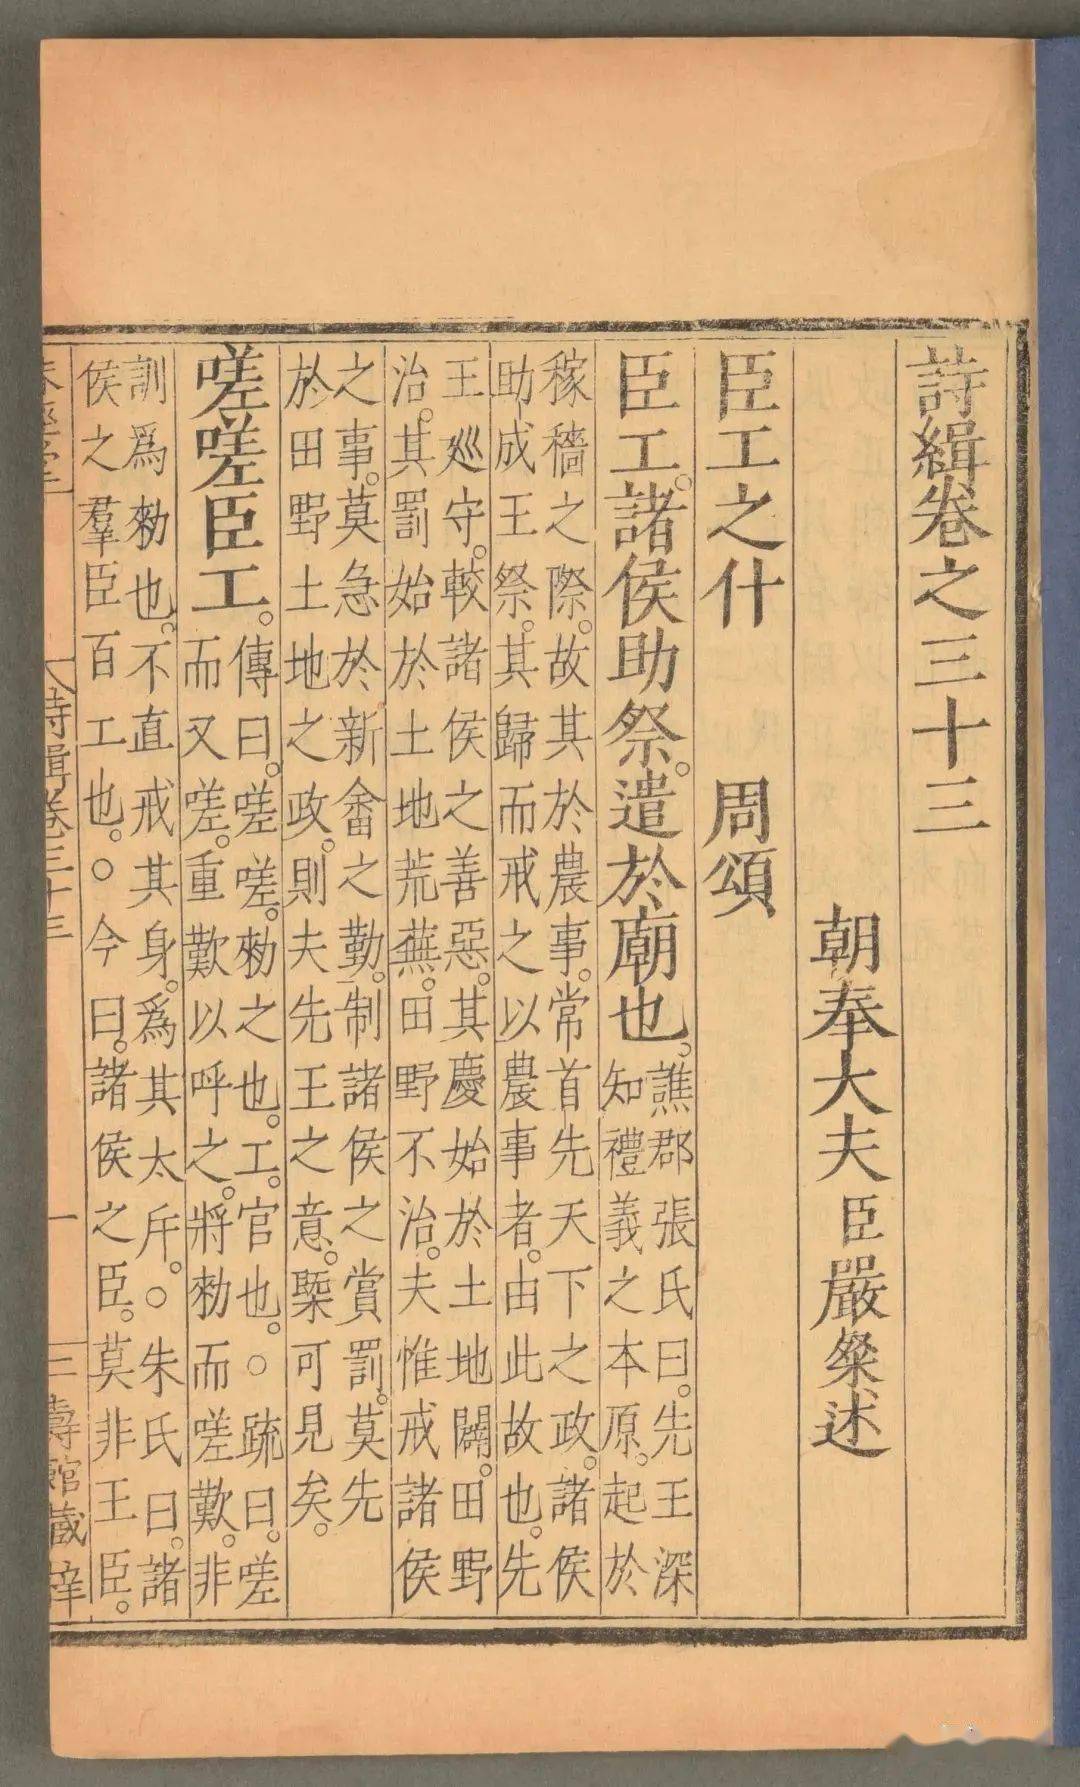 詩緝卷之三十三
朝奉大夫臣嚴粲述
臣工之什　周頌
臣工。諸侯助祭。遣於廟也。
譙郡張氏曰。先王深
知禮義之本原。起於
稼穡之際。故其於農事。常首先天下之政。諸侯
助成王祭。其歸而戒之以農事者。由此故也。先
王巡守。較諸侯之善惡。其慶始於土地闢。田野
治。其罰始於土地荒蕪。田野不治。夫惟戒諸侯
之事。莫急於新畬之勤。制諸侯之賞罰。莫先
於田野土地之政。則夫先王之意。槩可見矣。
嗟嗟臣工。
傳曰。嗟嗟。勑之也。工。官也。○疏曰。嗟
而又嗟。重歎以呼之。將勑而嗟歎。非
訓爲勑也。不直戒其身。爲其太斥。○朱氏曰。諸
侯之羣臣百工也。○今曰。諸侯之臣。莫非王臣。
詩緝卷三十三
一